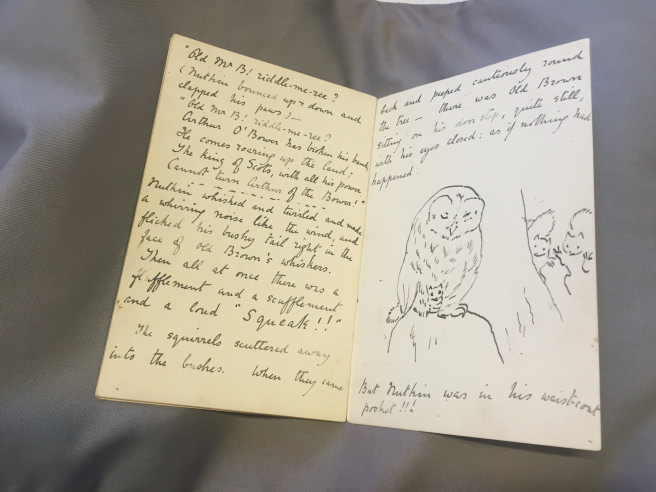 "Old Mr B! riddle-me-ree?
(Nutkin bounced up & down and
clapped his paws)—
"Old Mr B! riddle-me-ree?
Arthur O'Bower has broken his band,
He comes roaring up the land;
The King of Scots, with all his power
Cannot turn Arthur of the Bower!"
Nutkin whisked and twirled and made
a whirring noise like the wind; and
flicked his bushy tail right in the
face of old Brown's whiskers.
Then all at once there was a
flufflement and a scufflement
and a loud "Squeak!!"
The squirrels scuttered away
into the bushes. When they came
back and peeped cautiously round
the tree — there was Old Brown
sitting on his door step, quite still,
with his eyes closed: as if nothing had
happened.
But Nutkin was in his waist-coat
pocket!!!